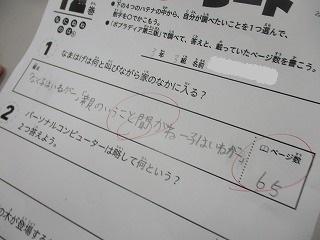 巻
下の4つのハテナの中から、自分が調べたいことを1つ選んで、
数字を○でかこもう。
『ポプラディア第三版』で調べて、答えと、載っていたページ数を書こう。
年 組 名前
1 なまはげは何と叫びながら家のなかに入る?
答え
なくこはいねがー、「親のいうこと聞かねー子はいねがー
ページ数
65
2 パーソナルコンピューターは略して何という?
2つ答えよう。
の木が登場する